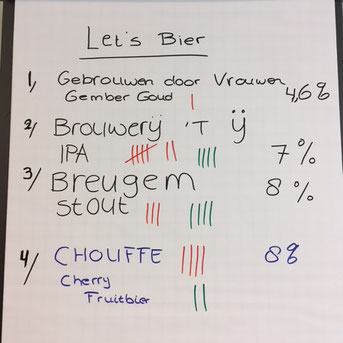 Let's Bier
1, Gebrouwen door Vrouwen
Gember Goud | 4,6%
2/ Brouwerij 'T ij
IPA |||| || |||| 7%
3/ Breugem 8%
Stout ||| ||||
4/ CHOUFFE |||| 8%
Cherry
Fruitbier ||